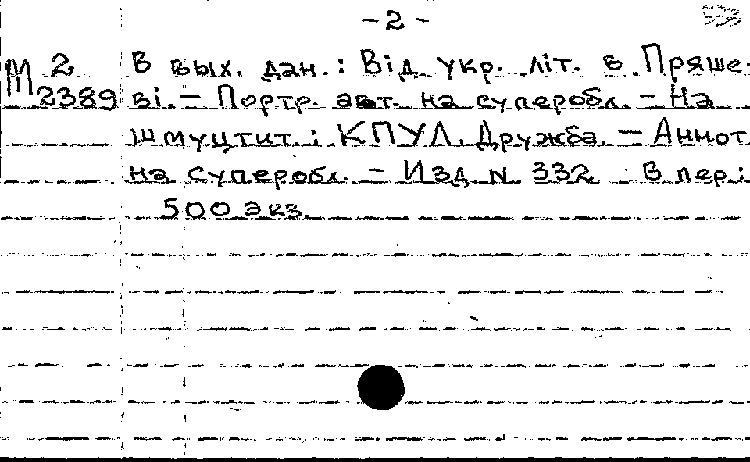 - 2 -
М 2 В вых. дан.: Від. укр. літ. в Пряше-
М 2389 ві. – Портр. авт. на суперобл. – На
шмуцтит.: КПУЛ. Дружба. – Аннот.
на суперобл. – Изд N 332 В пер.:
500 экз.